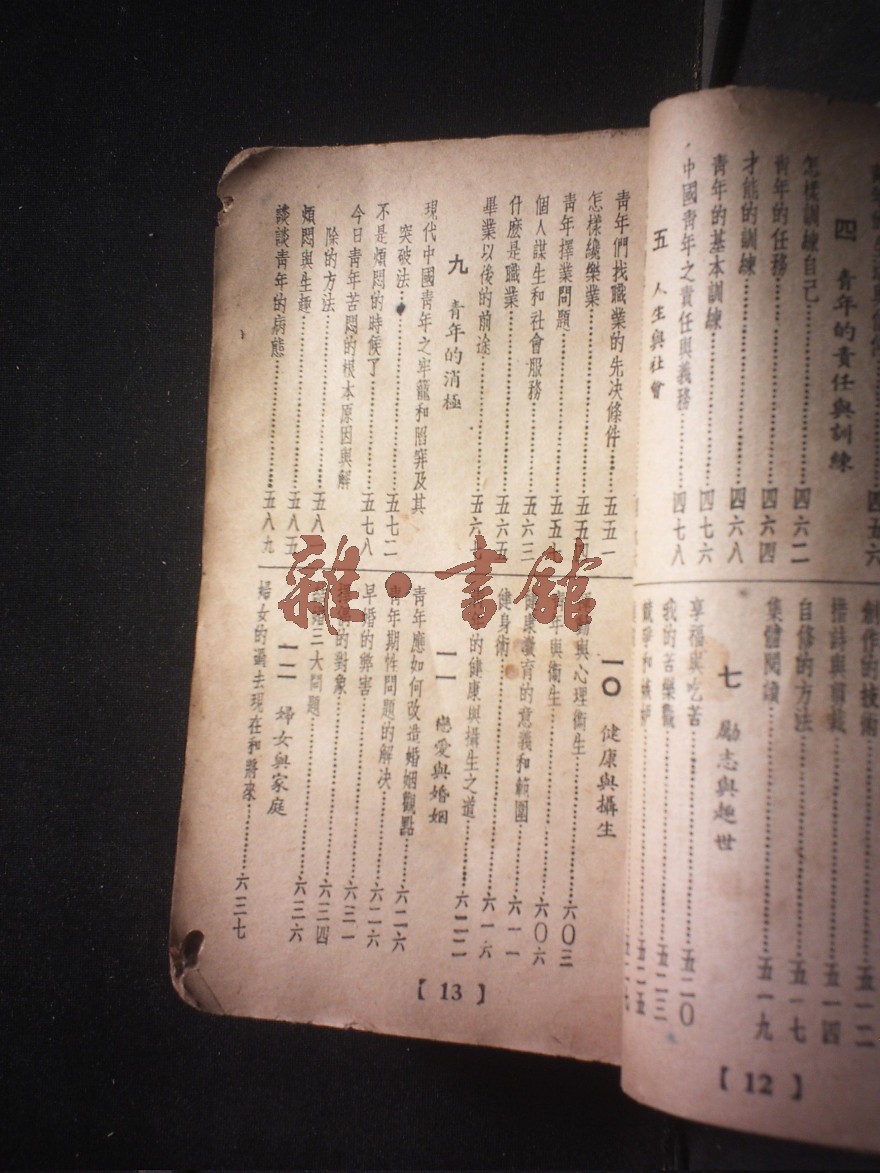 四 青年的責任與訓練
怎樣訓練自己……四六二
青年的任務……四六四
才能的訓練……四六八
青年的基本訓練……四七六
五 人生與社會
中國青年之責任與義務……四七八
創作的技術……五一二
五一四
自修的方法……五一七
集體閱讀……五一九
七 勵志與處世
享福與吃苦……五二〇
我的苦樂觀……五二三
【12】
青年們找職業的先決條件……五五一
怎樣纔樂業……五五四
青年擇業問題……五五七
個人謀生和社會服務……五六三
什麼是職業……五六五
畢業以後的前途……五六七
九 青年的消極
現代中國青年之牢籠和陷穽及其
突破法……五七二
不是煩悶的時候了……五七八
今日青年苦悶的根本原因與解
除的方法……五八
煩悶與生趣……五八五
談談青年的病態……五八九
一〇 健康與攝生
與心理衞生……六〇三
年與衞生……六〇六
健康教育的意義和範圍……六一一
健身術……六一六
的健康與攝生之道……六二二
一一 戀愛與婚姻
青年應如何改造婚姻觀點……六二六
青年期性問題的解決……六二六
早婚的弊害……六三一
的對象……六三四
婚三大問題……六三六
一二 婦女與家庭
婦女的過去現在和將來……六三七
【13】
雜·書館